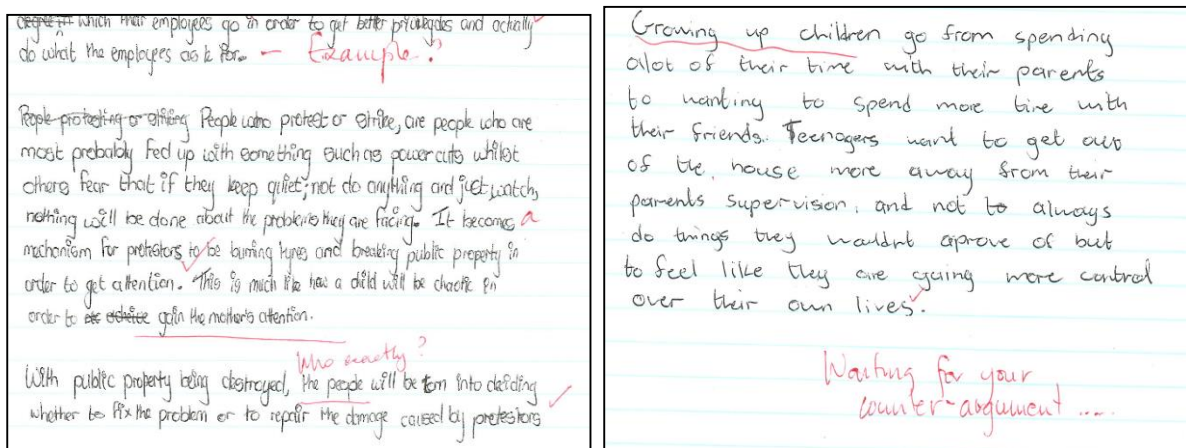 which their employees go in order to get better priveleges and actually
do what the employees ask for. – Example?
People protesting or striking People who protest or strike, are people who are
most probably fed up with something such as powercuts whilst
others fear that if they keep quiet; not do anything and just watch,
nothing will be done about the problems they are facing. It becomes a
mechanism for protestors to be burning tyres and breaking public property in
order to get attention. This is much like how a child will be chaotic in
order to gain the mother's attention.
Who exactly?
With public property being destroyed, the people will be torn into deciding
whether to fix the problem or to repair the damage caused by protestors
Growing up children go from spending
alot of their time with their parents
to wanting to spend more time with
their friends. Teenagers want to get out
of the house more away from their
parents supervision, and not to always
do things they wouldnt aprove of but
to feel like they are gaing more control
over their own lives.
Waiting for your
counter-argument ....